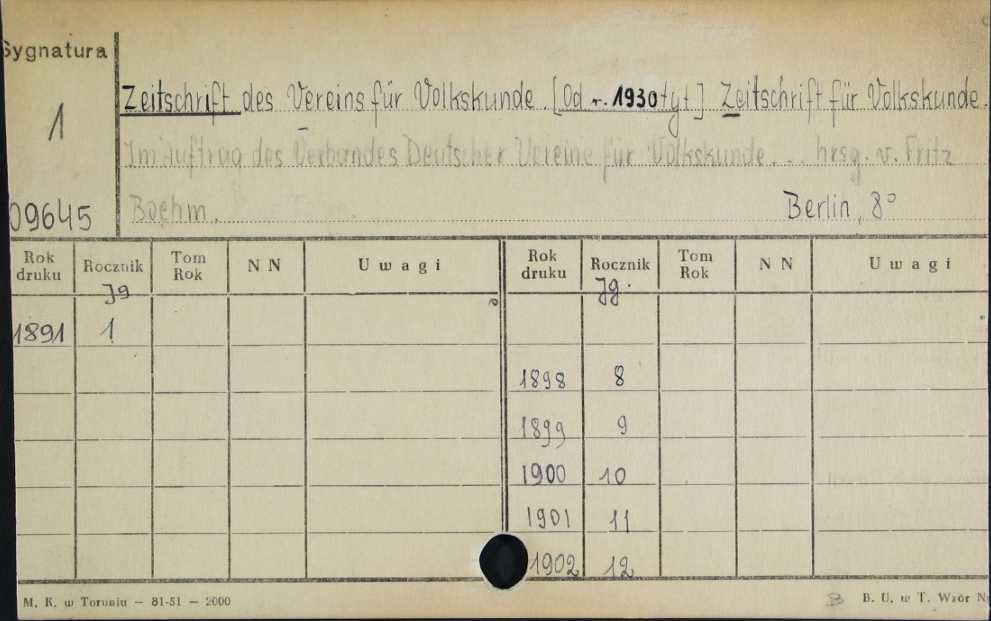 Sygnatura
1
09645
Zeitschrift des Vereins für Volkskunde. [Od r. 1930 tyt] Zeitschrift für Volkskunde.
Im Auftrag des Verbandes Deutscher Vereine für Volkskunde... hrsg. v. Fritz
Boehm. Berlin, 8°
Rok druku Rocznik Tom Rok N N Uwagi Rok druku Rocznik Tom Rok N N Uwagi
Jg Jg.
1891 1
1898 8
1899 9
1900 10
1901 11
1902 12
M. K. w Toruniu — 81-51 — 2000 B. U. w T. Wzór N